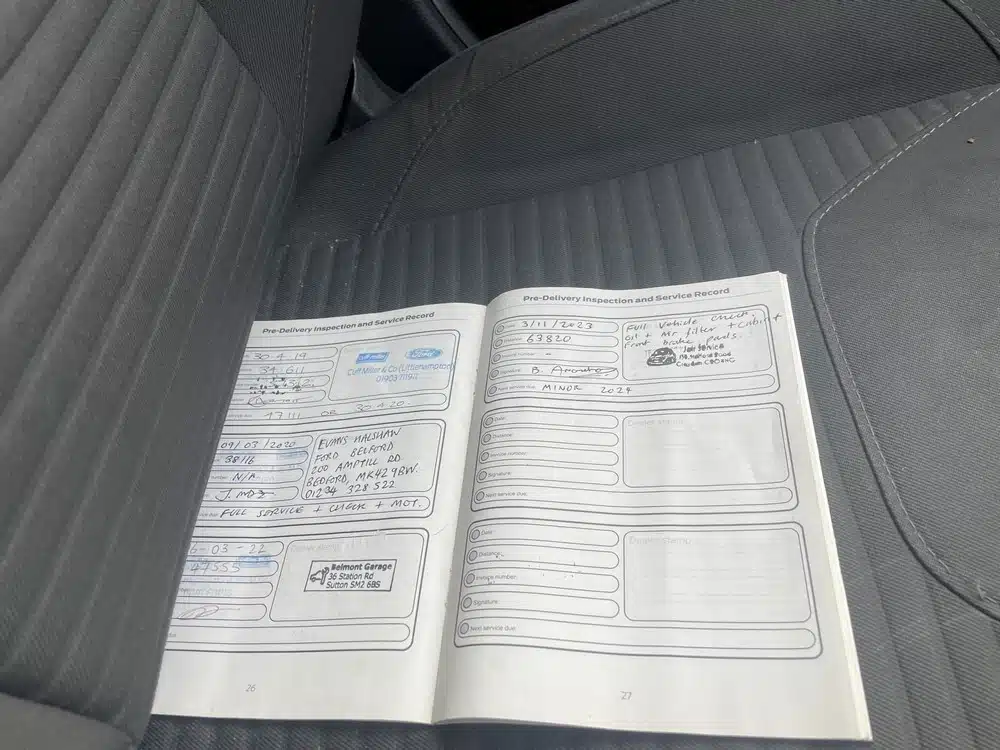 Pre-Delivery Inspection and Service Record
30.4.19
34,611
Cuff Miller & Co (Littlehampton)
Ford
47111 OR 30.4.20.
09/03/2020
38116
N/A
EVANS HALSHAW
FORD BEDFORD
200 AMPTILL RD
BEDFORD, MK42 9BW.
01234 328 522
FULL SERVICE + CHECK + MOT.
6-03-22
47555
Dealer stamp
Belmont Garage
36 Station Rd
Sutton SM2 6BS
26
Pre-Delivery Inspection and Service Record
Date 3/11/2023
Distance 63820
Invoice number -
Signature B.
Next service due MINOR 2024
Full Vehicle check.
Oil + Air filter + Cabin +
Front brake pads.
Date
Distance
Invoice number
Signature
Next service due
Dealer stamp
Date
Distance
Invoice number
Signature
Next service due
Dealer stamp
27